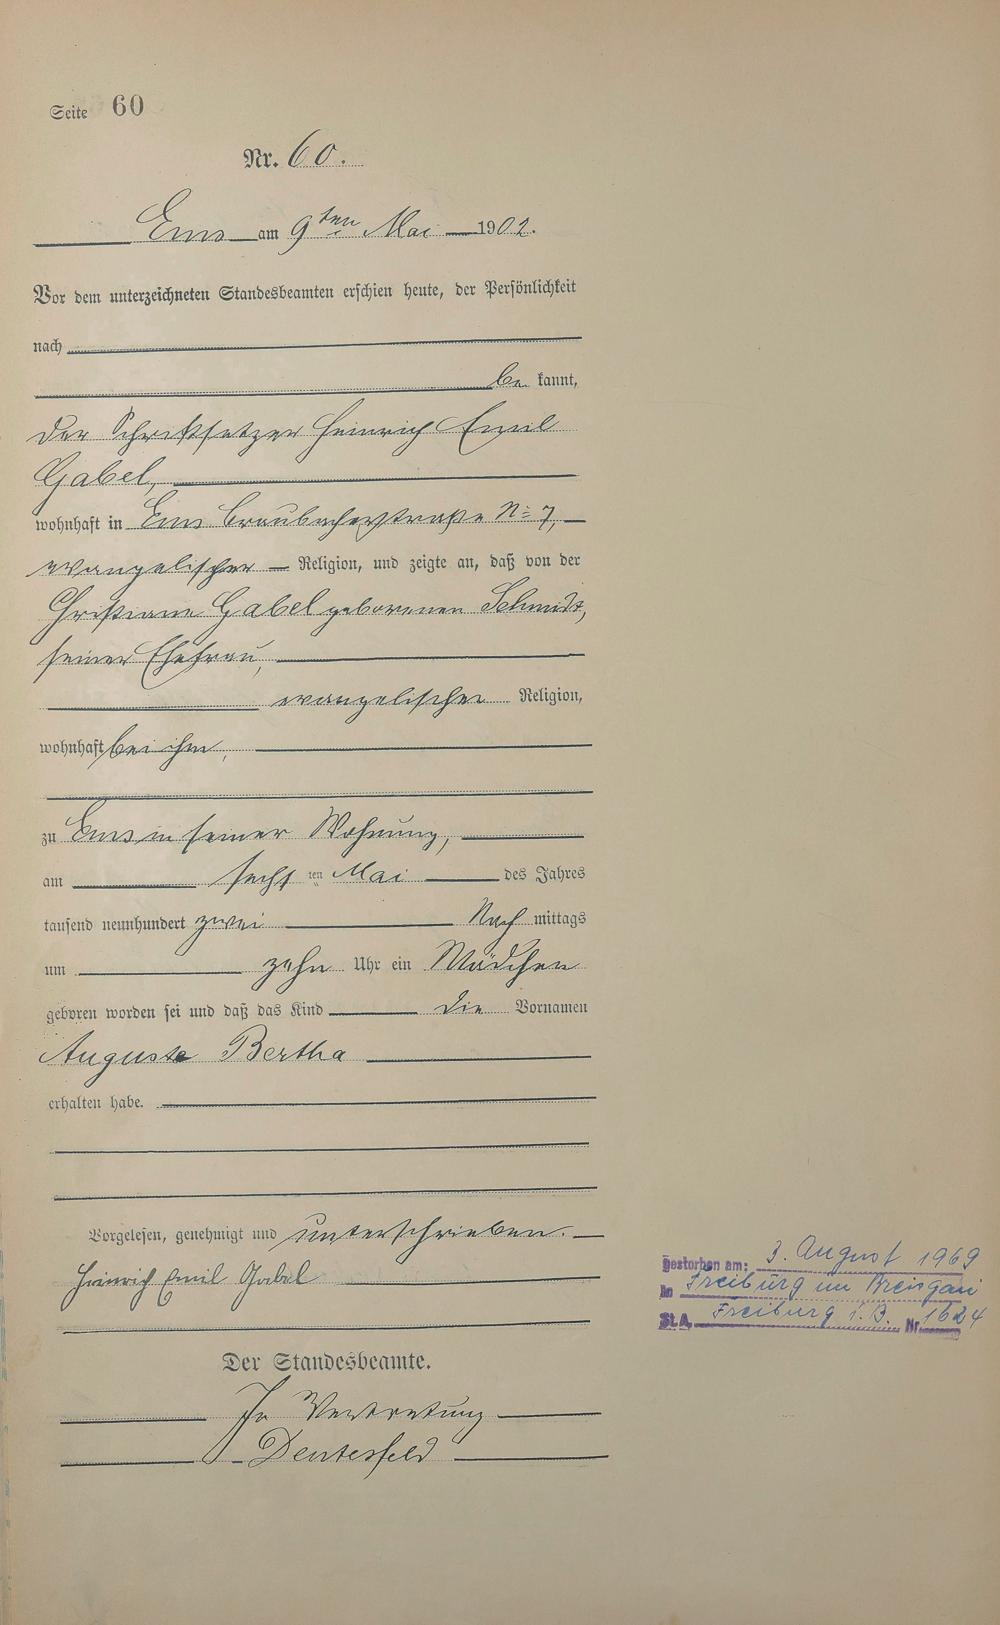 Seite 60
Nr. 60.
Ems am 9ten Mai 1902.
Vor dem unterzeichneten Standesbeamten erschien heute, der Persönlichkeit
nach
be kannt,
der Schriftsetzer Heinrich Emil
Gabel,
wohnhaft in Ems Braubacherstraße No 7,
evangelischer Religion, und zeigte an, daß von der
Christiane Gabel geborenen Schmidt,
seiner Ehefrau,
evangelischer Religion,
wohnhaft bei ihm,
zu Ems in seiner Wohnung,
am sechsten Mai des Jahres
tausend neunhundert zwei Nach mittags
um zehn Uhr ein Mädchen
geboren worden sei und daß das Kind die Vornamen
Auguste Bertha
erhalten habe.
Vorgelesen, genehmigt und unterschrieben.
Heinrich Emil Gabel
Der Standesbeamte.
In Vertretung
gestorben am: 3. August 1969
in Freiburg im Breisgau
St.A. Freiburg i. B. Nr. 1624